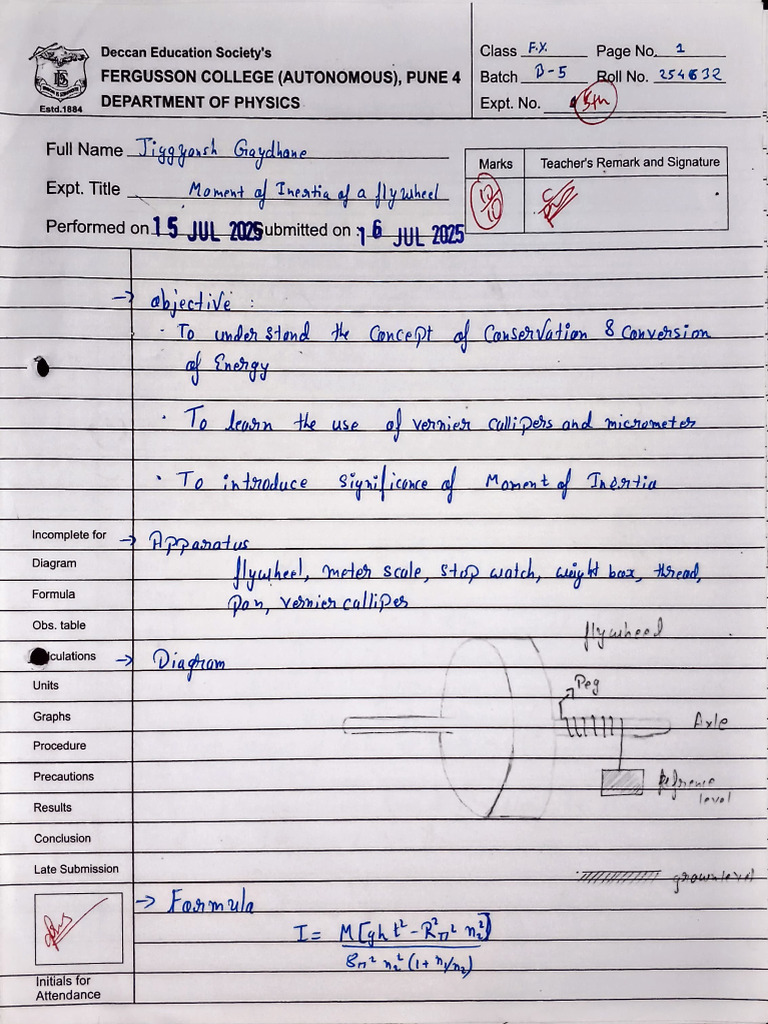 Deccan Education Society's
FERGUSSON COLLEGE (AUTONOMOUS), PUNE 4
DEPARTMENT OF PHYSICS
Estd.1884
Class F.Y. Page No. 1
Batch B-5 Roll No. 254632
Expt. No. 5th
Full Name Jiggyansh Gaydhane
Expt. Title Moment of Inertia of a flywheel
Performed on 15 JUL 2025 Submitted on : 16 JUL 2025
Marks Teacher's Remark and Signature
10/10
→ objective :
· To understand the concept of Conservation & Conversion
of Energy
· To learn the use of vernier callipers and micrometer
· To introduce significance of Moment of Inertia
Incomplete for
Diagram
Formula
Obs. table
Calculations
Units
Graphs
Procedure
Precautions
Results
Conclusion
Late Submission
Initials for
Attendance
→ Apparatus
flywheel, meter scale, stop watch, weight box, thread,
pan, vernier calliper
→ Diagram
flywheel
Peg
Axle
Refrence
level
→ Formula
I = M[ght² - R²π² n₂²] / 8π² n₂² (1 + n₁/n₂)